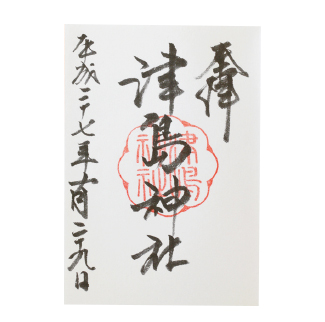 奉拝
津島神社
津島神社
平成二十七年十一月二十九日